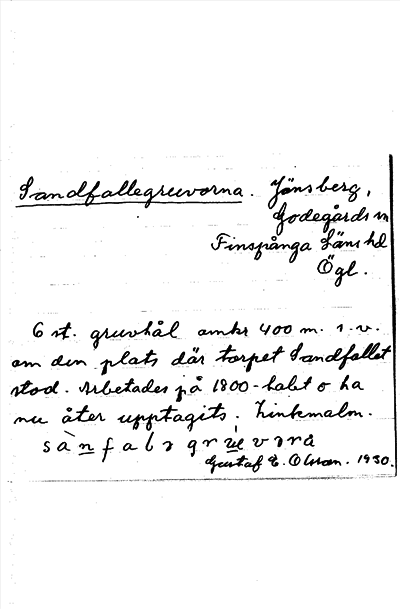 Sandfallegruvorna. Jönsberg,
Godegårds sn
Finspånga Läns hd
Ögl.
6 st. gruvhål omkr 400 m. s.v.
om den plats där torpet Sandfallet
stod. Arbetades på 1800-talet o ha
nu åter upptagits. Zinkmalm.
Gustaf E. Olsson. 1930.